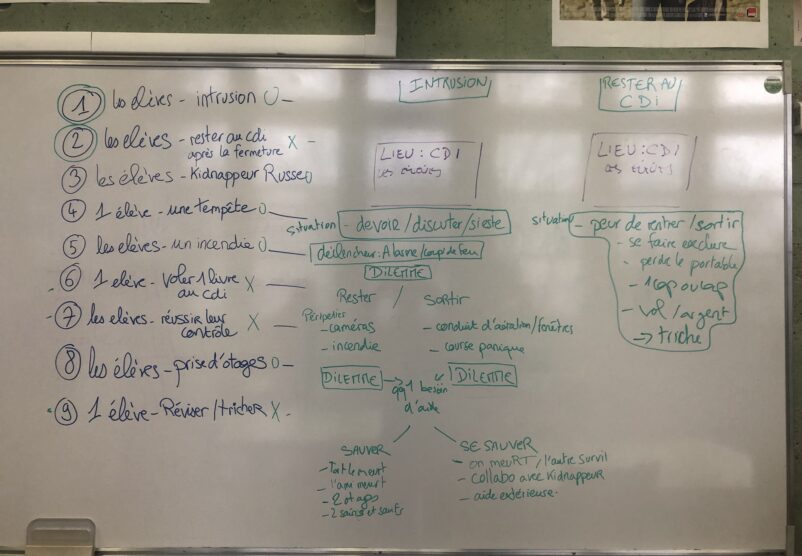 ① les élèves - intrusion O -
② les élèves - rester au cdi X -
après la fermeture
③ les élèves - Kidnappeur Russe O
④ 1 élève - une tempête O
⑤ les élèves - un incendie O
⑥ 1 élève - Voler 1 livre X -
au cdi
⑦ les élèves - réussir leur X -
contrôle
⑧ les élèves - prise d'otages O -
⑨ 1 élève - Réviser/tricher X -
INTRUSION
LIEU : CDI
situation - devoir/discuter/sieste
déclencheur : Alarme/coup de feu
DILEMME
Rester / Sortir
Péripéties
- caméras
- incendie
- conduit d'aération/fenêtres
- course panique
DILEMME → qq1 besoin
d'aide
DILEMME
SAUVER
- Tt le meurt
- l'ami meurt
- 2 otages
- 2 sains et saufs
SE SAUVER
- on meuRT/l'autre survit
- collabo avec Kidnappeur
- aide extérieure
RESTER AU
CDI
LIEU : CDI
situation - peur de rentrer/sortir
- se faire exclure
- perdre le portable
- 1 cap ou cap
- vol/argent
→ triche